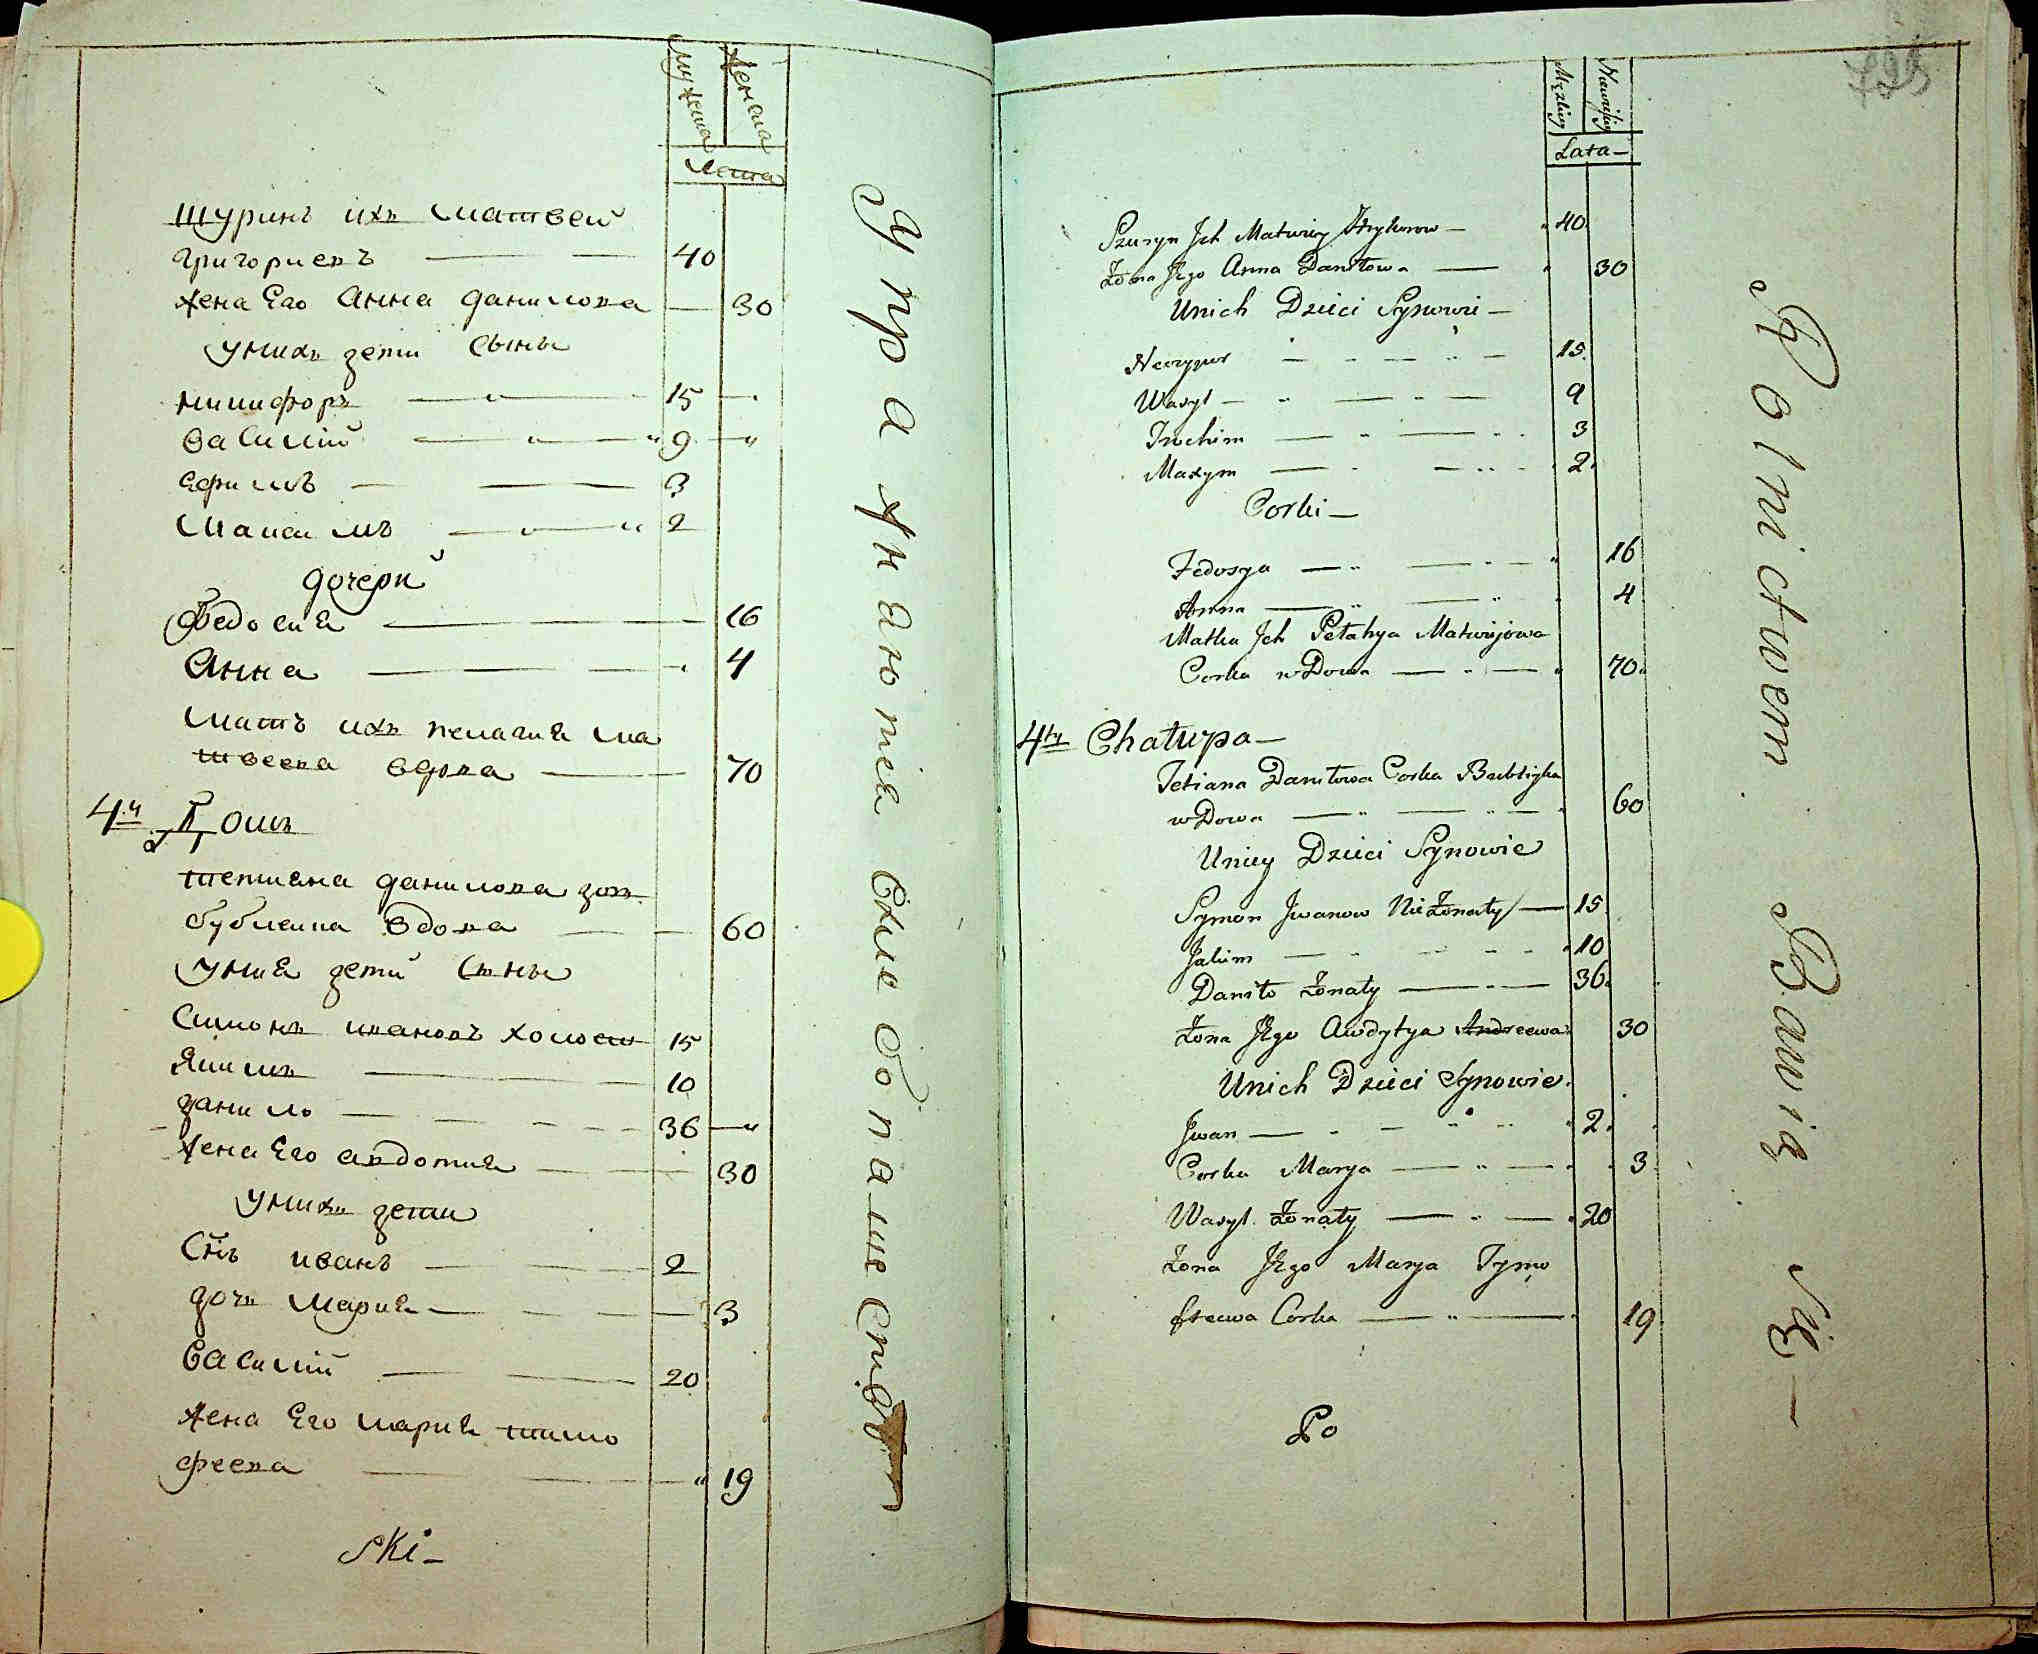 мужеска женска
лета
шуринъ ихъ матвей
григориевъ — — 40
жена Его анна данилова — 30
унихъ дети сыны
никифоръ — „ — 15 —
василий — „ — „ 9 — „
ефимъ — — 3
максимъ — „ — „ 2
дочери
федосия — 16
анна — — 4
мать ихъ пелагия ма
твеева вдова — 70
4й Домъ
тетиана данилова доч.
бублика вдова — — 60
унией дети сыны
симонъ ивановъ холост 15
якимъ — — 10
данило — — — — 36 — „
жена Его авдотия — — 30
унихъ дети
снъ иванъ — — 2
дочь мария — — — 3
василий — — 20
жена Его мария тимо
феева — — „ 19
ski —
упражняются
хлебопашеством
725
Męzkiey Niewieściey
Lata —
Szuryn Ich Matwiey Hryhorow — 40
Żona Jego Anna Daniłowa — 30
Unich Dzieci Synowie —
Neczypor — — — 15
Wasyl — „ — — 9
Jwchim — „ — 3
Maxym — — 2
Corki —
Fedosya — „ — 16
Anna — „ — 4
Matka Ich Pelahya Matwijowa
Corka wDowa — „ — 70
4ty Chałupa —
Tetiana Daniłowa Corka Bublика
wDowa — „ — 60
Uniey Dzieci Synowie
Symon Jwanow NieŻonaty — 15
Jakim — — — 10
Daniło Żonaty — — 36
Żona Jego Awdotya Andreewa 30
Unich Dzieci Synowie.
Jwan — — — 2
Corka Marya — „ — 3
Wasyl Żonaty — „ — 20
Żona Jego Marya Tymo
feewa Corka — „ — 19
Po
Rolnictwem Bawią Się —